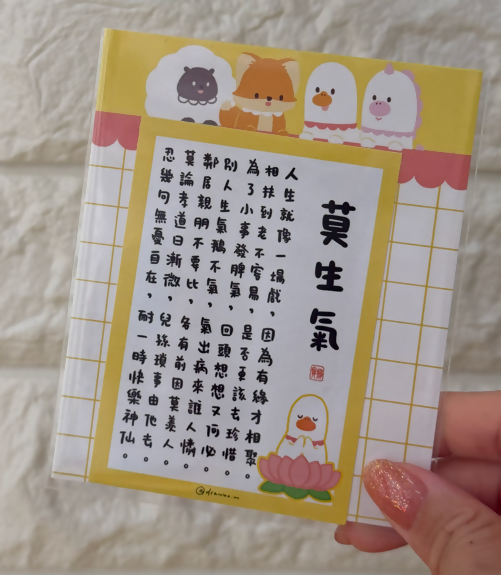 莫生氣
人生就像一場戲，因為有緣才相聚。
相扶到老不容易，是否更該去珍惜。
為了小事發脾氣，回頭想想又何必。
別人生氣鵝不氣，氣出病來誰人憐。
鄰居親朋不要比，各有前因莫羨人。
莫論孝道日漸微，兒孫瑣事由他去。
忍幾句無憂自在，耐一時快樂神仙。